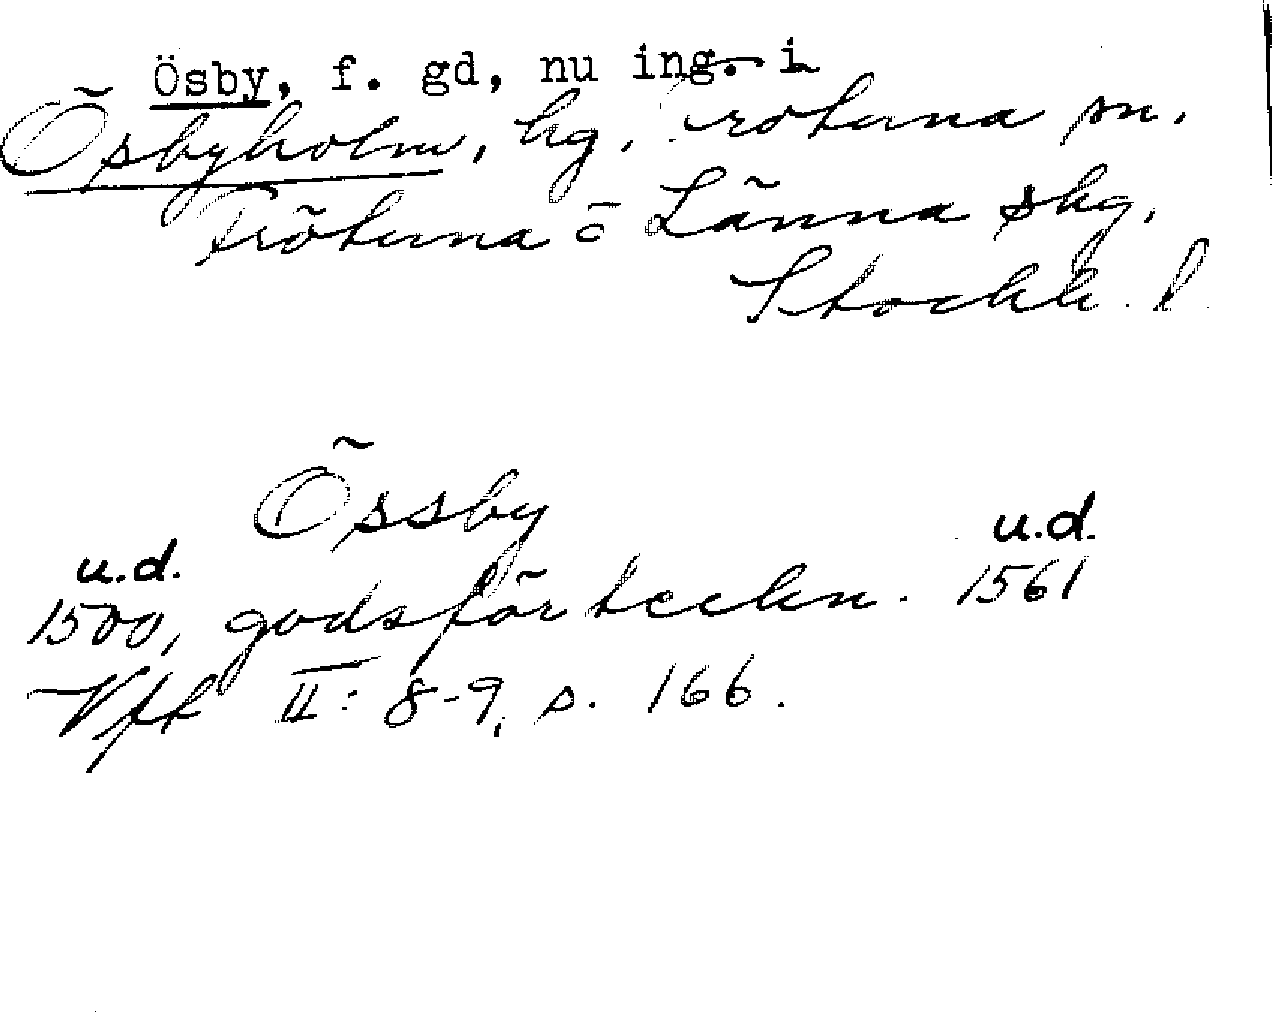 Ösby, f. gd, nu ing. i
Ösbyholm, hg, Frötuna sn.
Frötuna o Länna skg.
Stockh. l.
Össby
u.d. u.d.
1500, godsförteckn. 1561
Vff II: 8-9, s. 166.